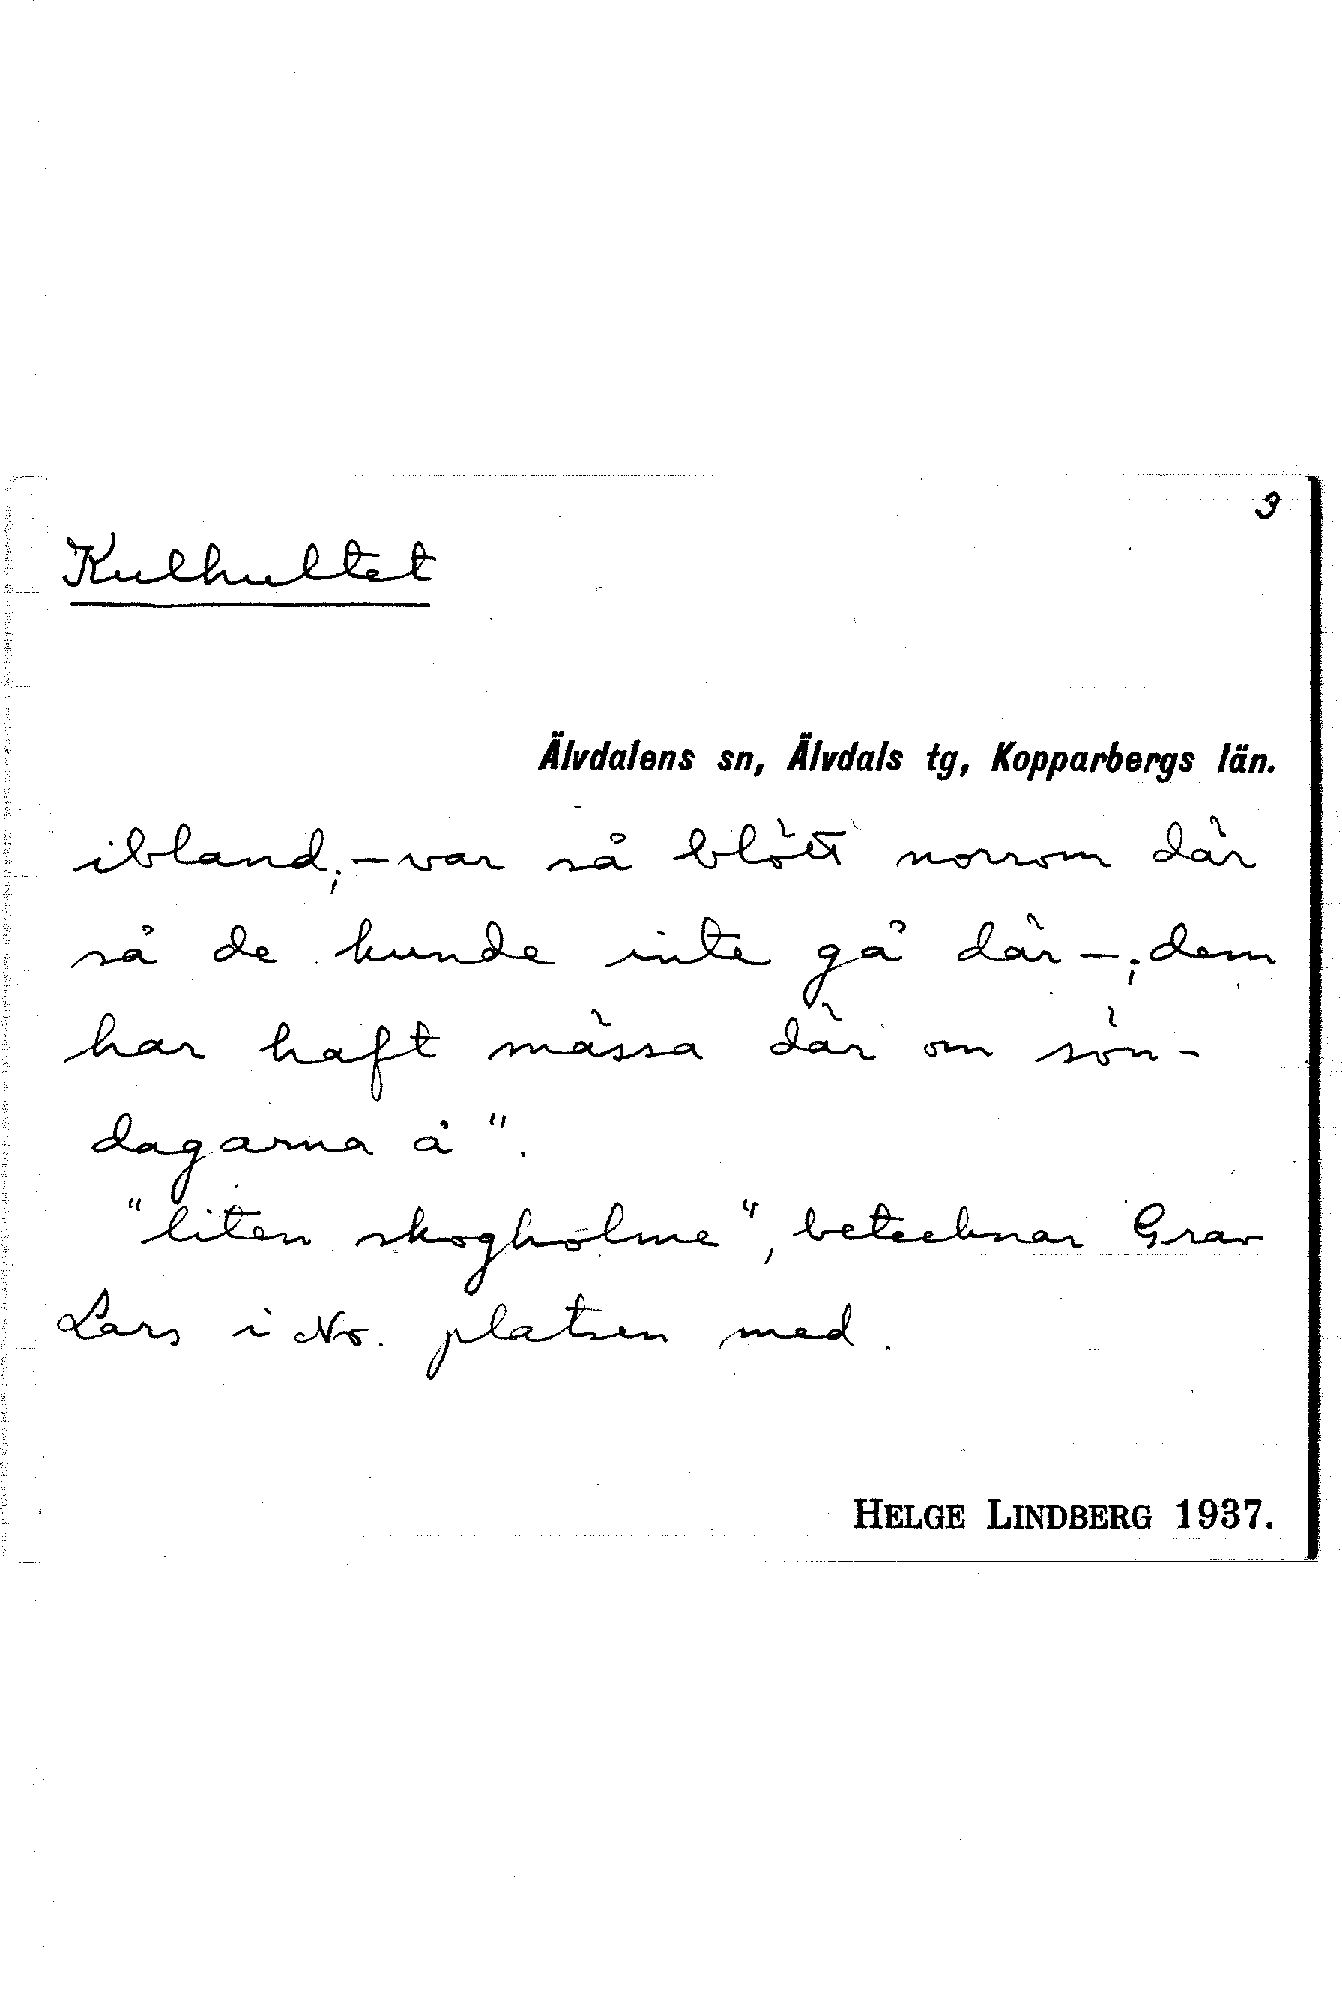 3
Kulhultet
Älvdalens sn, Älvdals tg, Kopparbergs län.
ibland; – var så blött norrom där
så de kunde inte gå där –; dem
har haft mässa där om sön-
dagarna å".
"liten skogholme", betecknar Grav
Lars i No. platsen med.
HELGE LINDBERG 1937.